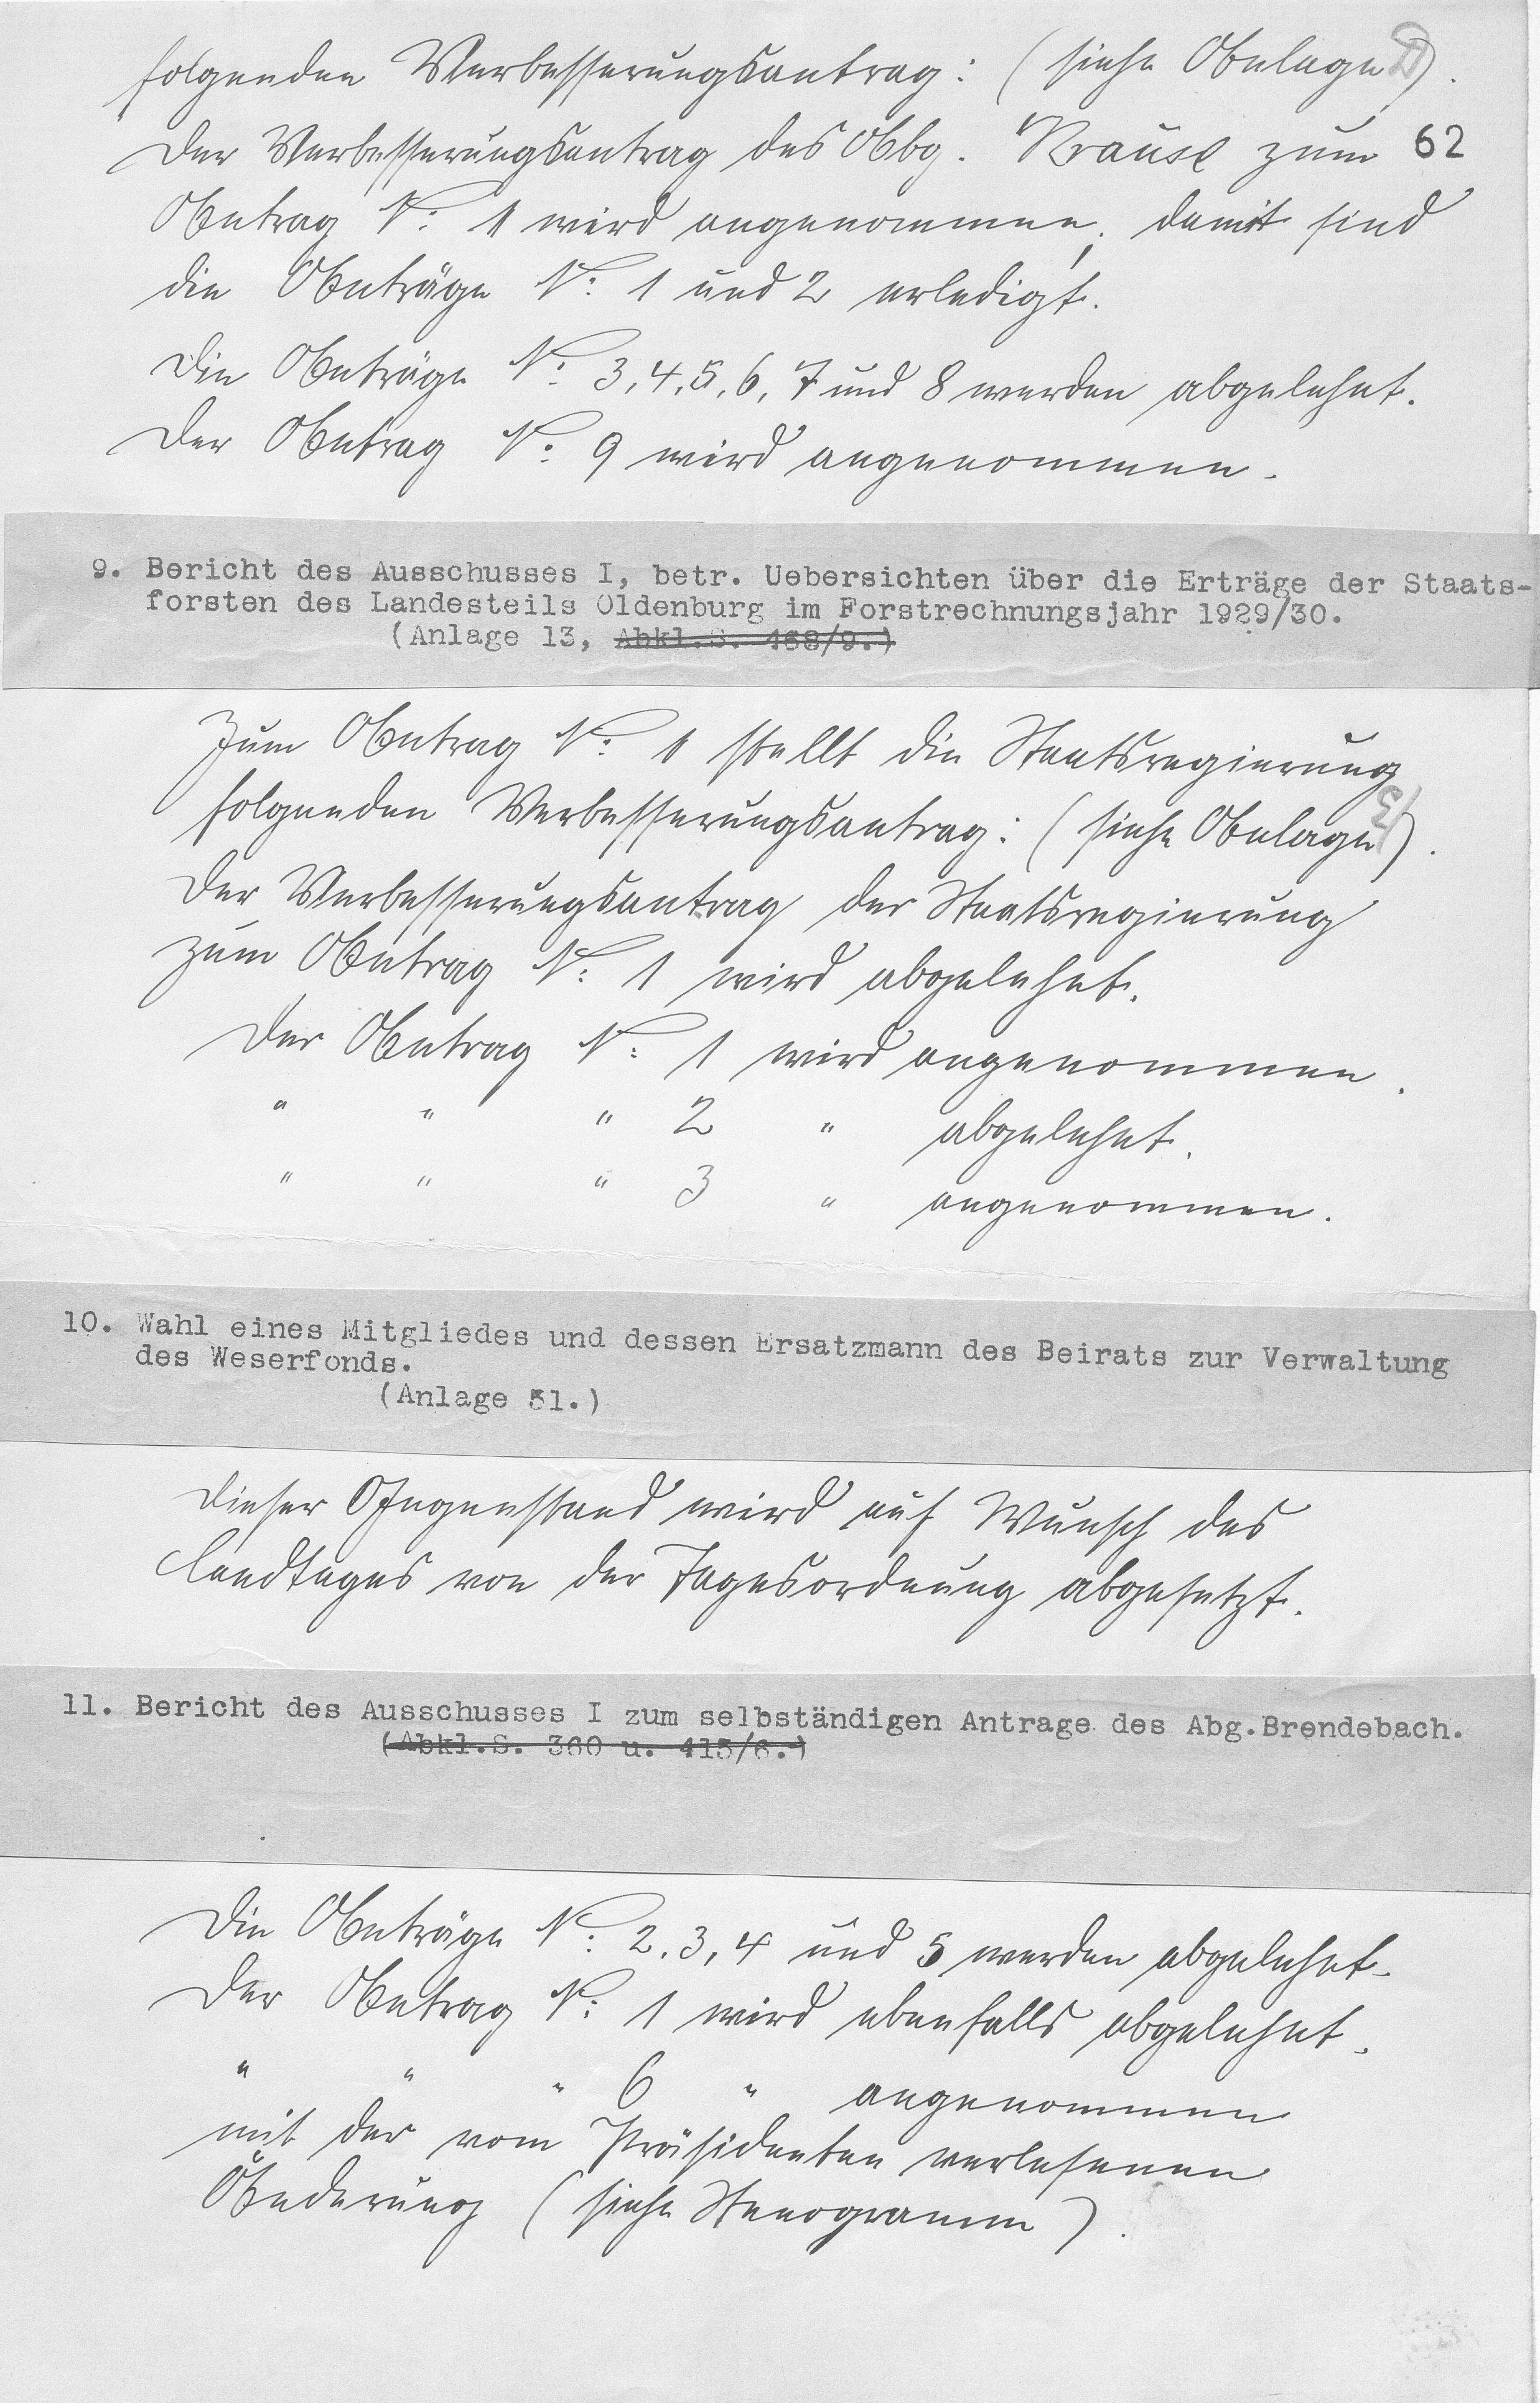 folgenden Verbesserungsantrag: (siehe Anlage D).
Der Verbesserungsantrag des Abg. Krause zum 62
Antrag No: 1 wird angenommen; damit sind
die Anträge No: 1 und 2 erledigt.
Die Anträge No: 3, 4, 5, 6, 7 und 8 werden abgelehnt.
Der Antrag No: 9 wird angenommen.
9. Bericht des Ausschusses I, betr. Uebersichten über die Erträge der Staats-
forsten des Landesteils Oldenburg im Forstrechnungsjahr 1929/30.
(Anlage 13, Abkl.S. 468/9.)
Zum Antrag No: 1 stellt die Staatsregierung
folgenden Verbesserungsantrag: (siehe Anlage E).
Der Verbesserungsantrag der Staatsregierung
zum Antrag No: 1 wird abgelehnt.
Der Antrag No: 1 wird angenommen.
" " " 2 " abgelehnt.
" " " 3 " angenommen.
10. Wahl eines Mitgliedes und dessen Ersatzmann des Beirats zur Verwaltung
des Weserfonds.
(Anlage 51.)
Dieser Gegenstand wird auf Wunsch des
Landtages von der Tagesordnung abgesetzt.
11. Bericht des Ausschusses I zum selbständigen Antrage des Abg.Brendebach.
(Abkl.S. 360 u. 415/6.)
Die Anträge No: 2, 3, 4 und 5 werden abgelehnt.
Der Antrag No: 1 wird ebenfalls abgelehnt.
" " " 6 " angenommen
mit der vom Präsidenten verlesenen
Änderung (siehe Stenogramm).